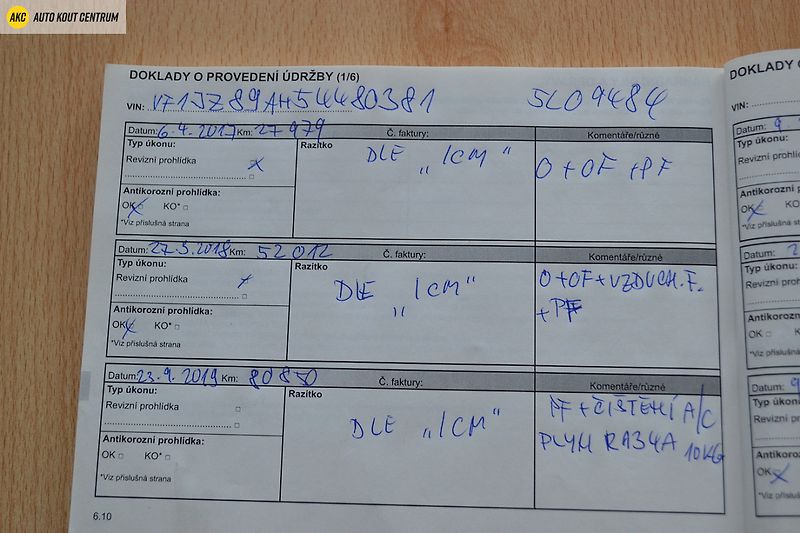 AKC AUTO KOUT CENTRUM
DOKLADY O PROVEDENÍ ÚDRŽBY (1/6)
VIN: VF1JZ89AH54480381 5L09484
Datum: 6.4.2017 Km: 27 979 Č. faktury: Komentáře/různé
Typ úkonu: Razítko
Revizní prohlídka
DLE "ICM" O+OF+PF
Antikorozní prohlídka:
OK KO*
*Viz příslušná strana
Datum: 27.3.2018 Km: 52012 Č. faktury: Komentáře/různé
Typ úkonu: Razítko
Revizní prohlídka
DLE "ICM" O+OF+VZDUCH.F.
+PF
Antikorozní prohlídka:
OK KO*
*Viz příslušná strana
Datum: 23.9.2019 Km: 80850 Č. faktury: Komentáře/různé
Typ úkonu: Razítko
Revizní prohlídka
DLE "ICM" PF+ČIŠTĚNÍ A/C
PLYM RA34A 10KG
Antikorozní prohlídka:
OK KO*
*Viz příslušná strana
6.10
DOKLADY O
VIN:
Datum: 9
Typ úkonu:
Revizní prohlíd
Antikorozní
OK KO
*Viz příslušn
Datum: 2
Typ úkonu:
Revizní pro
Antikorozn
OK
*Viz příslu
Datum: 9
Typ úkon
Revizní p
Antikoro
OK
*Viz přís